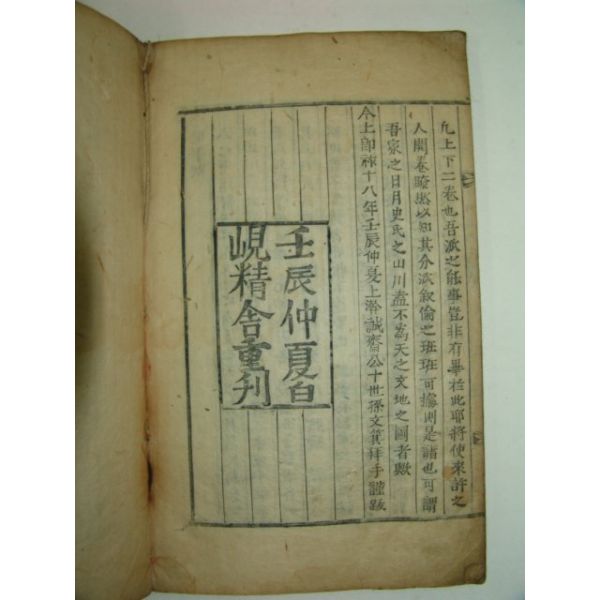 凡上下二卷也吾派之能事豈非有畢於此耶將使來許之
人開卷瞭然以知其分派敘倫之班班可據則是譜也可謂
吾家之日月史氏之山川盖不爲天之文地之圖者歟
今上卽祚十八年壬辰仲夏上澣誠齋公十世孫文箕拜手謹跋
壬辰仲夏白
峴精舍重刋